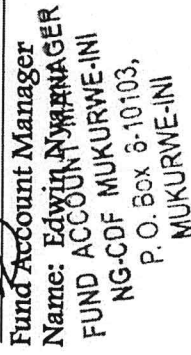 Fund Account Manager
Name: Edwin
FUND ACCOUNT MANAGER
NG-CDF MUKURWE-INI
P. O. Box 6-10103,
MUKURWE-INI